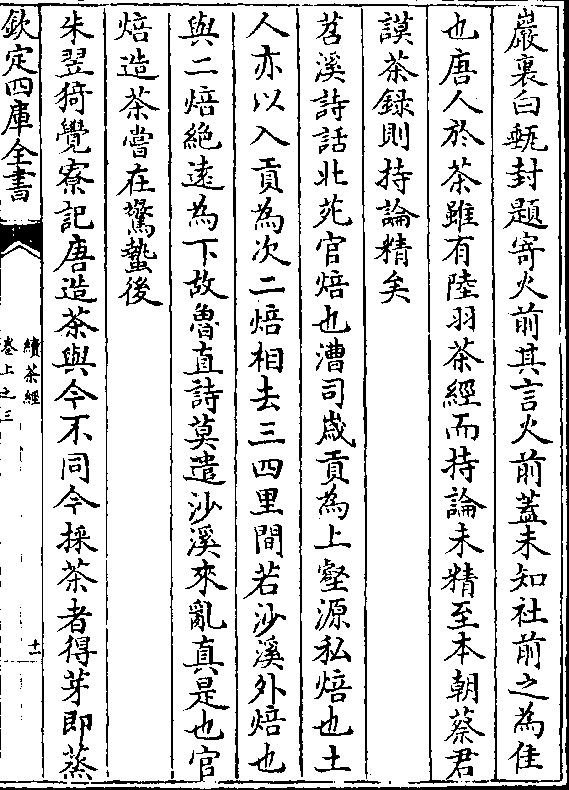 巖裏白甀封題寄火前其言火前蓋未知社前之為佳
也唐人於茶雖有陸羽茶經而持論未精至本朝蔡君
謨茶録則持論精矣
苕溪詩話北苑官焙也漕司歲貢為上壑源私焙也土
人亦以入貢為次二焙相去三四里間若沙溪外焙也
與二焙絶遠為下故魯直詩莫遣沙溪來亂真是也官
焙造茶嘗在驚蟄後
朱翌猗覺寮記唐造茶與今不同今採茶者得芽即蒸
欽定四庫全書
續茶經
卷上之三
十一